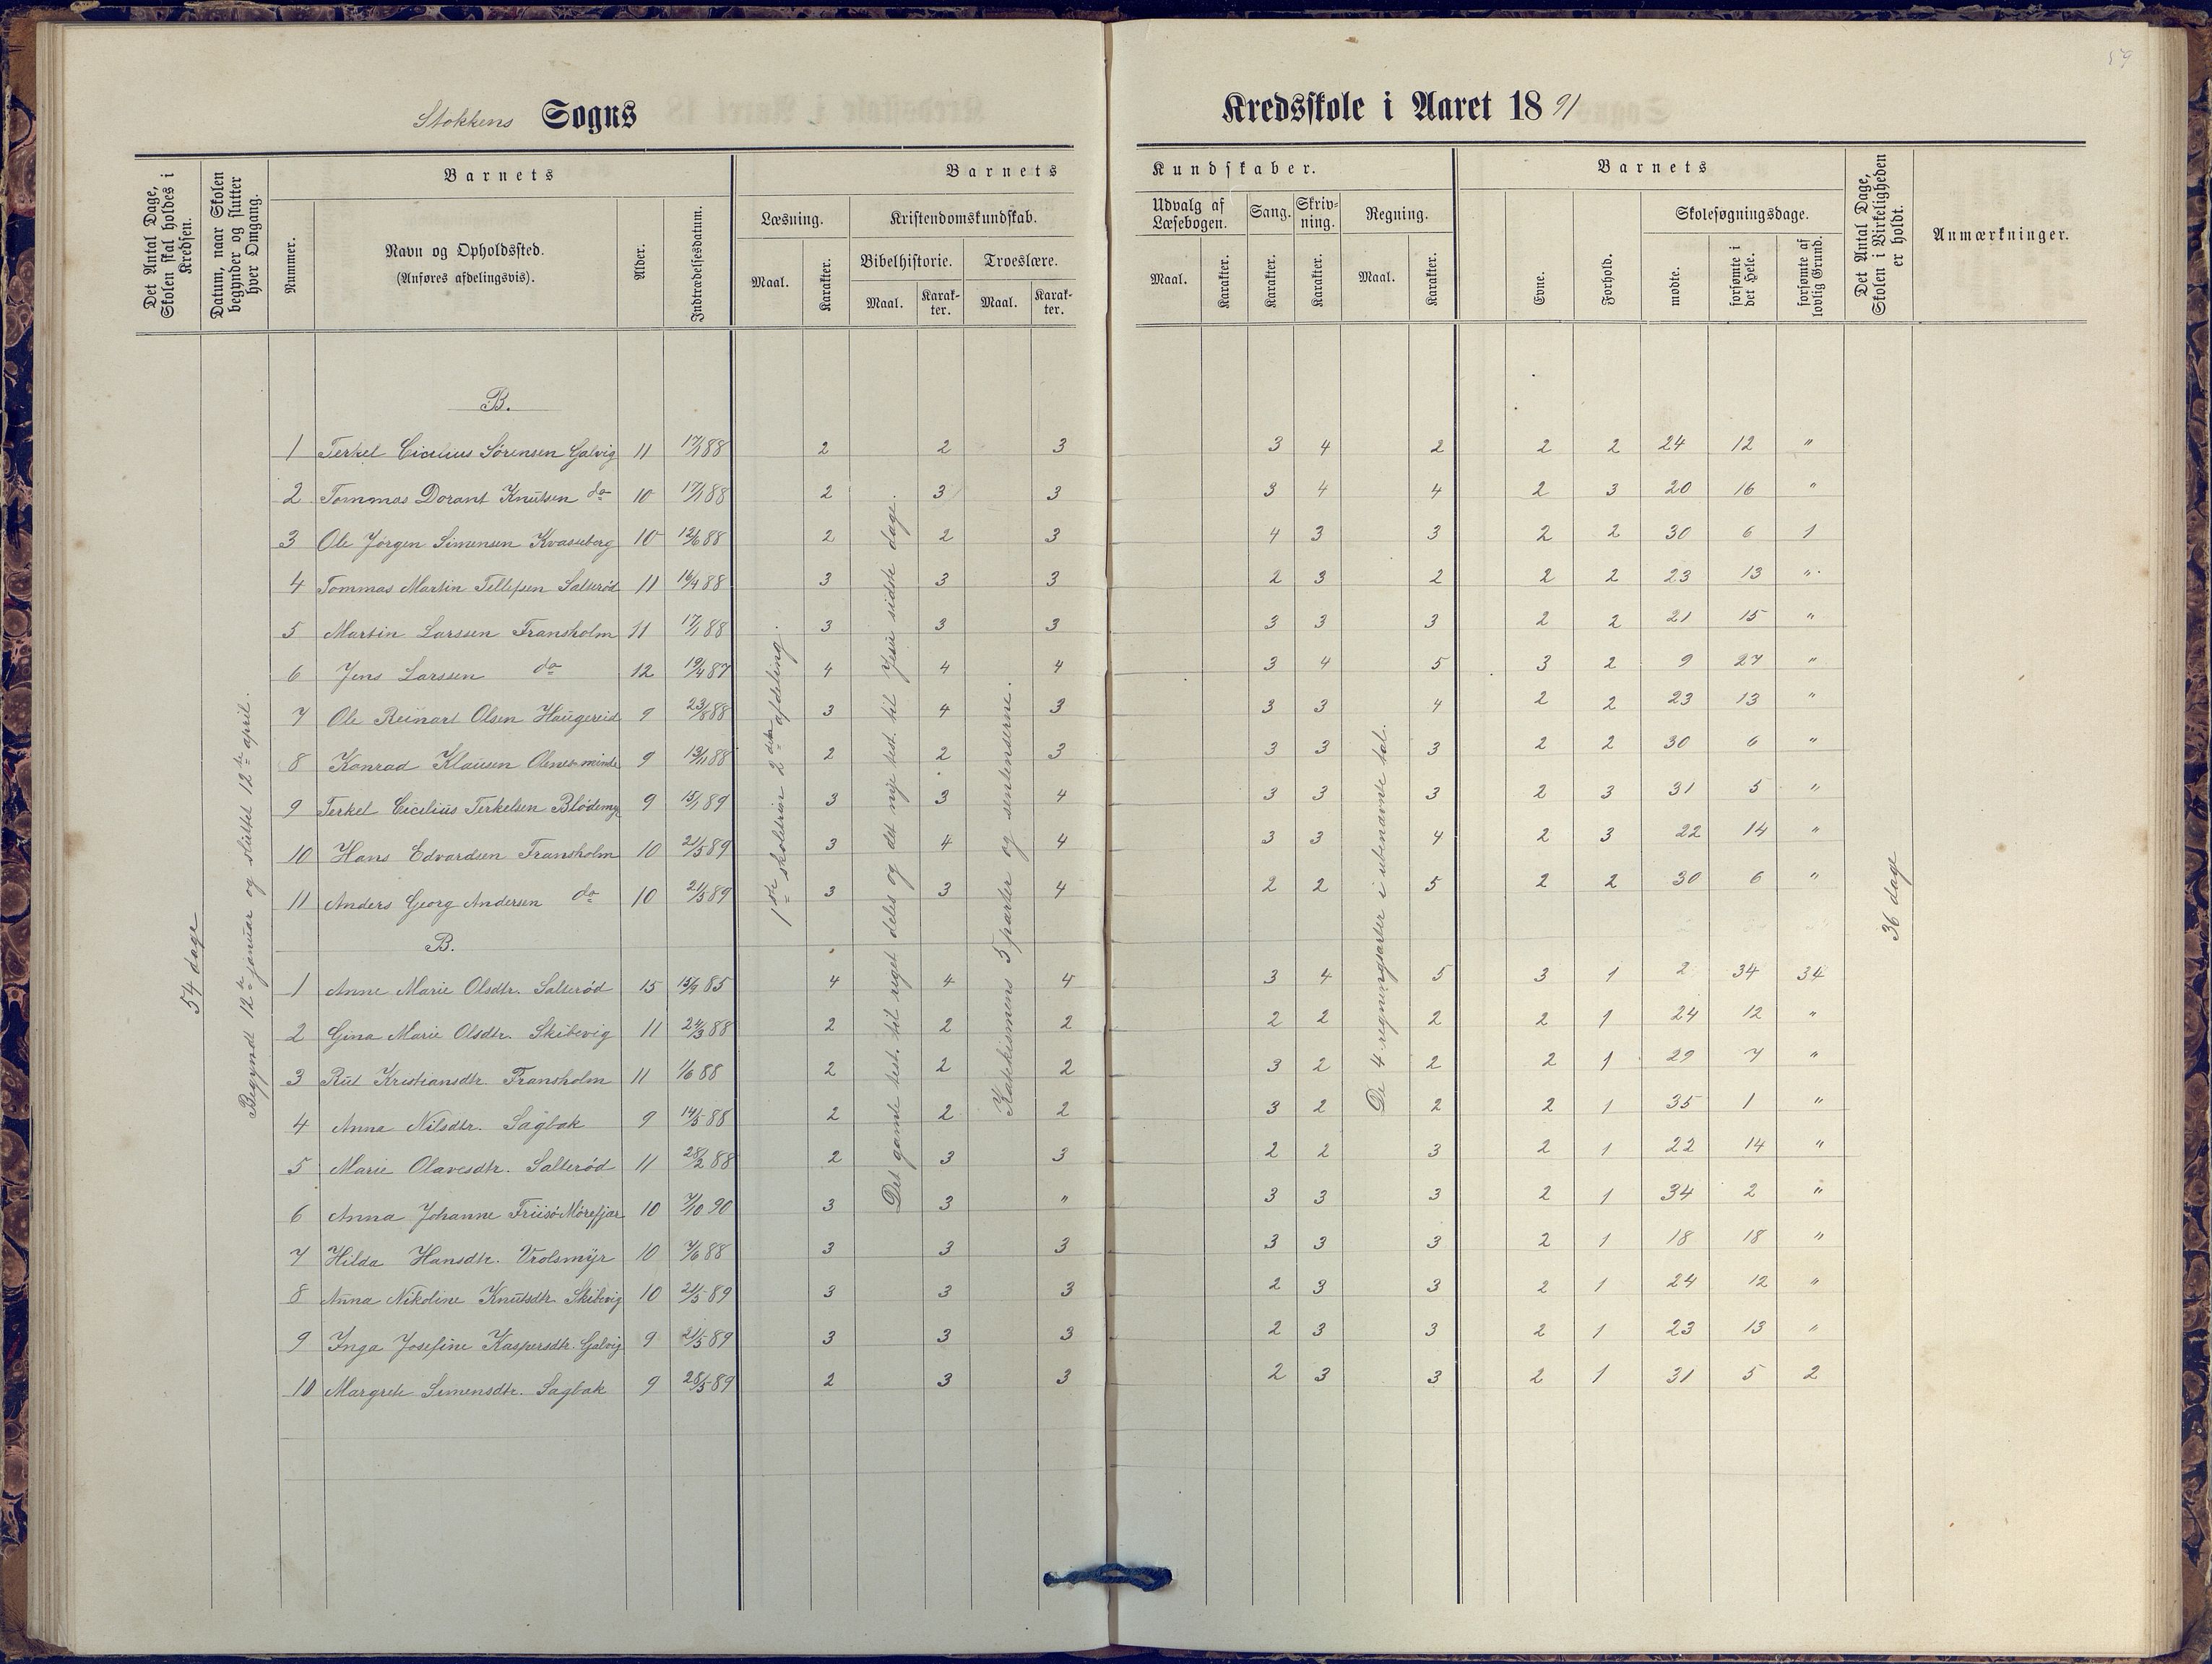 59
Stokkens Sogns
Kredsskole i Aaret 1891
Det Antal Dage, Skolen skal holdes i Kredsen.
Datum, naar Skolen begynder og slutter hver Omgang.
Barnets
Nummer.
Navn og Opholdssted.
(Anføres afdelingsvis).
Alder.
Indtrædelsesdatum.
Barnets
Læsning.
Maal.
Karakter.
Kristendomskundskab.
Bibelhistorie.
Maal.
Karakter.
Troeslære.
Maal.
Karakter.
Kundskaber.
Udvalg af Læsebogen.
Maal.
Karakter.
Sang.
Karakter.
Skrivning.
Karakter.
Regning.
Maal.
Karakter.
Barnets
Evne.
Forhold.
Skolesøgningsdage.
mødte.
forsømte i det Hele.
forsømte af lovlig Grund.
Det Antal Dage, Skolen i Virkeligheden er holdt.
Anmærkninger.
54 dage
Begyndt 12te januar og sluttet 12te april.
1ste skoletrin 2den afdeling.
Det gamle test. til riget deles og det nye test. til Jesu sidste dage.
Katekismens 5 parter og sentenserne.
De 4 regningsarter i ubenævnte tal.
36 dage
B.
1 Terkel Cicelius Sørensen Galvig 11 17/1 88 2 2 3 3 4 2 2 2 24 12 "
2 Tommas Dorant Knutsen do 10 17/1 88 2 3 3 3 4 4 2 3 20 16 "
3 Ole Jørgen Simensen Kvaseberg 10 12/6 88 2 2 3 4 3 3 2 2 30 6 1
4 Tommas Martin Tellefsen Salterød 11 16/4 88 3 3 3 2 3 2 2 2 23 13 "
5 Martin Larssen Fransholm 11 17/1 88 3 3 3 3 3 3 2 2 21 15 "
6 Jens Larssen do 12 19/4 87 4 4 4 3 4 5 3 2 9 27 "
7 Ole Reinart Olsen Haugereid 9 23/8 88 3 4 3 3 3 4 2 2 23 13 "
8 Konrad Klausen Olenesminde 9 19/11 88 2 2 3 3 3 3 2 2 30 6 "
9 Terkel Cicelius Terkelsen Blødemyr 9 15/1 89 3 3 4 3 3 3 2 3 31 5 "
10 Hans Edvardsen Fransholm 10 21/5 89 3 4 4 3 3 4 2 3 22 14 "
11 Anders Georg Andersen do 10 21/5 89 3 3 4 2 2 5 2 2 30 6 "
B.
1 Anne Marie Olsdtr. Salterød 15 15/9 85 4 4 4 3 4 5 3 1 2 34 34
2 Gina Marie Olsdtr. Skibevig 11 24/3 88 2 2 2 2 2 2 2 1 24 12 "
3 Rut Kristiansdtr. Fransholm 11 1/6 88 2 2 2 3 2 2 2 1 29 7 "
4 Anna Nilsdtr. Sagbak 9 14/5 88 2 2 2 3 2 2 2 1 35 1 "
5 Marie Olavesdtr. Salterød 11 28/2 88 2 3 3 2 2 3 2 1 22 14 "
6 Anna Johanne Friisø Mørefjær 10 7/10 90 3 3 " 3 3 3 2 1 34 2 "
7 Hilda Hansdtr. Vrolsmyr 10 7/6 88 3 3 3 3 3 3 2 1 18 18 "
8 Anna Nikoline Knutsdtr. Skibevig 10 21/5 89 3 3 3 2 3 3 2 1 24 12 "
9 Inga Josefine Kaspersdtr. Galvig 9 21/5 89 3 3 3 2 3 3 2 1 23 13 "
10 Margrete Simensdtr. Sagbak 9 28/5 89 2 3 3 2 3 3 2 1 31 5 2